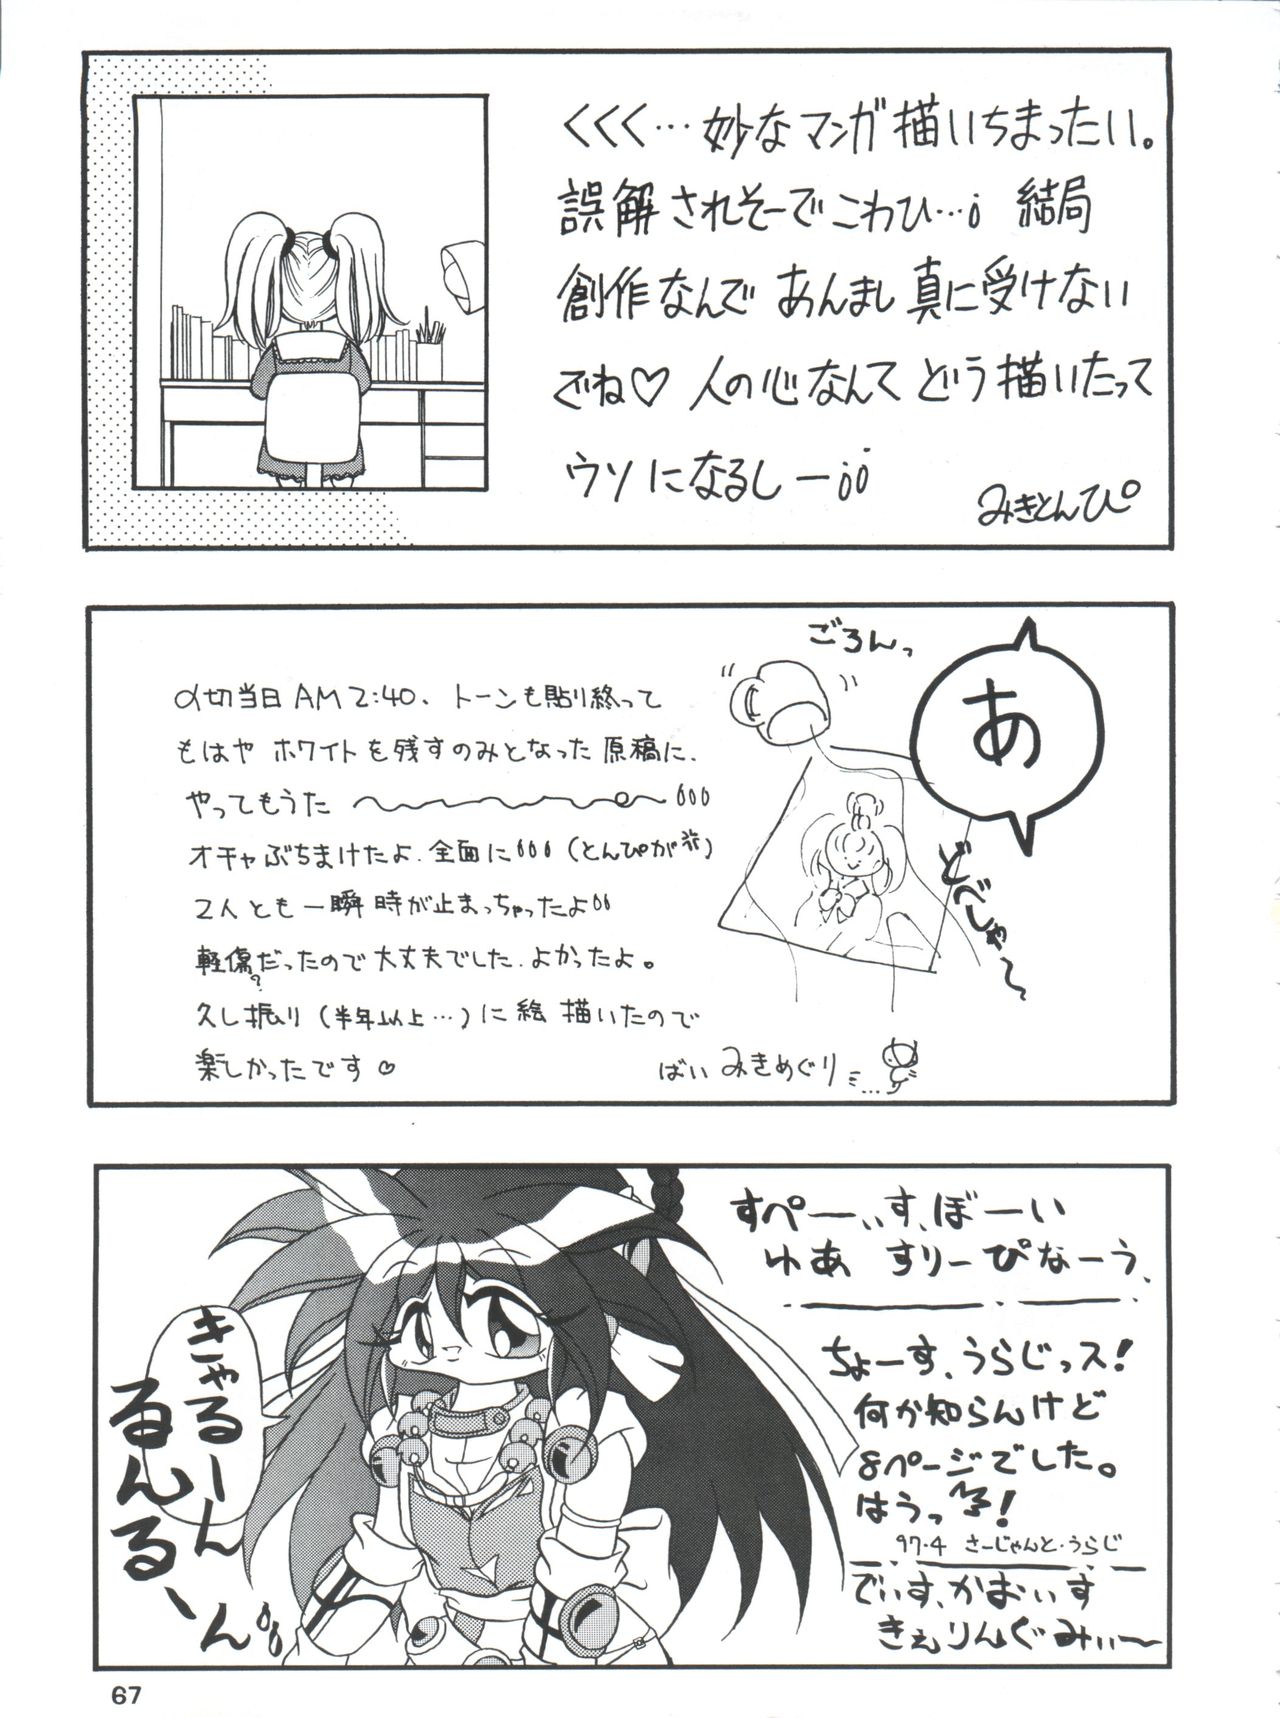 くくく…妙なマンガ描いちまったい。
誤解されそーでこわひ…結局
創作なんで あんまし真に受けない
でね♡ 人の心なんて どう描いたって
ウソになるしー
みきとんぴ
ごろんっ
あ
どべしゃ〜
〆切当日AM2:40、トーンも貼り終って
もはや ホワイトを残すのみとなった原稿に、
やってもうた
オチャぶちまけたよ.全面に(とんぴが)
2人とも一瞬時が止まっちゃったよ
軽傷?だったので大丈夫でした.よかったよ。
久し振り(半年以上…)に絵 描いたので
楽しかったです♡
ばい みきめぐり
すぺーぃす、ぼーい
ゆあ すりーぴなーう、
ちょーす、うらじっス!
何か知らんけど
8ページでした。
はうっ!
97.4 さーじゃんと・うらじ
でぃす、かおぃす
きぇりんぐみぃ〜
きゃるーん
るんるーん
67